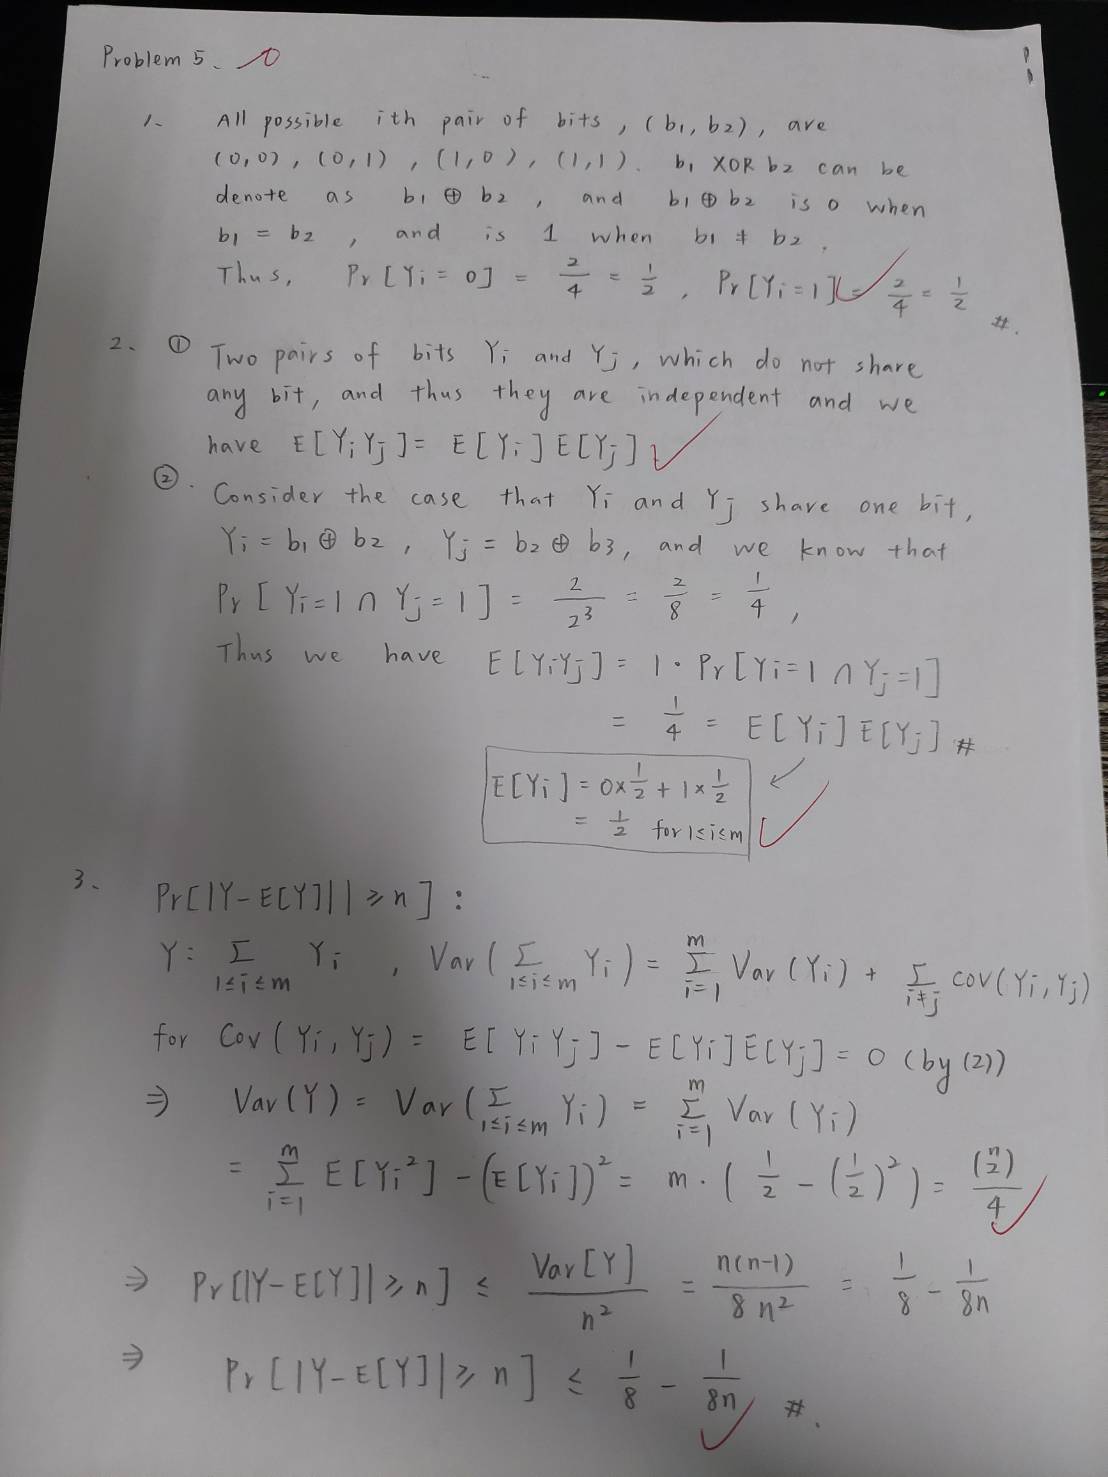 Problem 5. 0
1. All possible ith pair of bits, (b₁, b₂), are
(0,0), (0,1), (1,0), (1,1). b₁ XOR b₂ can be
denote as b₁ ⊕ b₂, and b₁ ⊕ b₂ is 0 when
b₁ = b₂, and is 1 when b₁ ≠ b₂.
Thus, Pr[Yi = 0] = 2/4 = 1/2, Pr[Yi = 1] = 2/4 = 1/2 #.
2. ① Two pairs of bits Yi and Yj, which do not share
any bit, and thus they are independent and we
have E[YiYj] = E[Yi]E[Yj]
②. Consider the case that Yi and Yj share one bit,
Yi = b₁ ⊕ b₂, Yj = b₂ ⊕ b₃, and we know that
Pr[Yi=1 ∩ Yj=1] = 2/2³ = 2/8 = 1/4,
Thus we have E[YiYj] = 1 · Pr[Yi=1 ∩ Yj=1]
= 1/4 = E[Yi]E[Yj] #
E[Yi] = 0×1/2 + 1×1/2
= 1/2 for 1≤i≤m
3. Pr[|Y-E[Y]|| ≥ n]:
Y: Σ_{1≤i≤m} Yi, Var(Σ_{1≤i≤m} Yi) = Σ_{i=1}^{m} Var(Yi) + Σ_{i≠j} cov(Yi, Yj)
for Cov(Yi, Yj) = E[YiYj] - E[Yi]E[Yj] = 0 (by (2))
⇒ Var(Y) = Var(Σ_{1≤i≤m} Yi) = Σ_{i=1}^{m} Var(Yi)
= Σ_{i=1}^{m} E[Yi²] - (E[Yi])² = m · (1/2 - (1/2)²) = (n 2)/4
⇒ Pr[|Y-E[Y]| ≥ n] ≤ Var[Y]/n² = n(n-1)/8n² = 1/8 - 1/8n
⇒ Pr[|Y-E[Y]| ≥ n] ≤ 1/8 - 1/8n #.